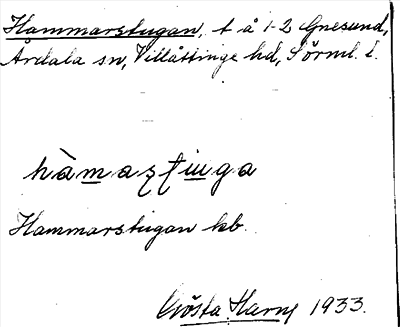 Hammarstugan, t å 1-2 Gnesund,
Årdala sn, Villåttinge hd, Sörml. l.
hàmaʂʈuga
Hammarstugan kb.
Gösta Harry 1933.